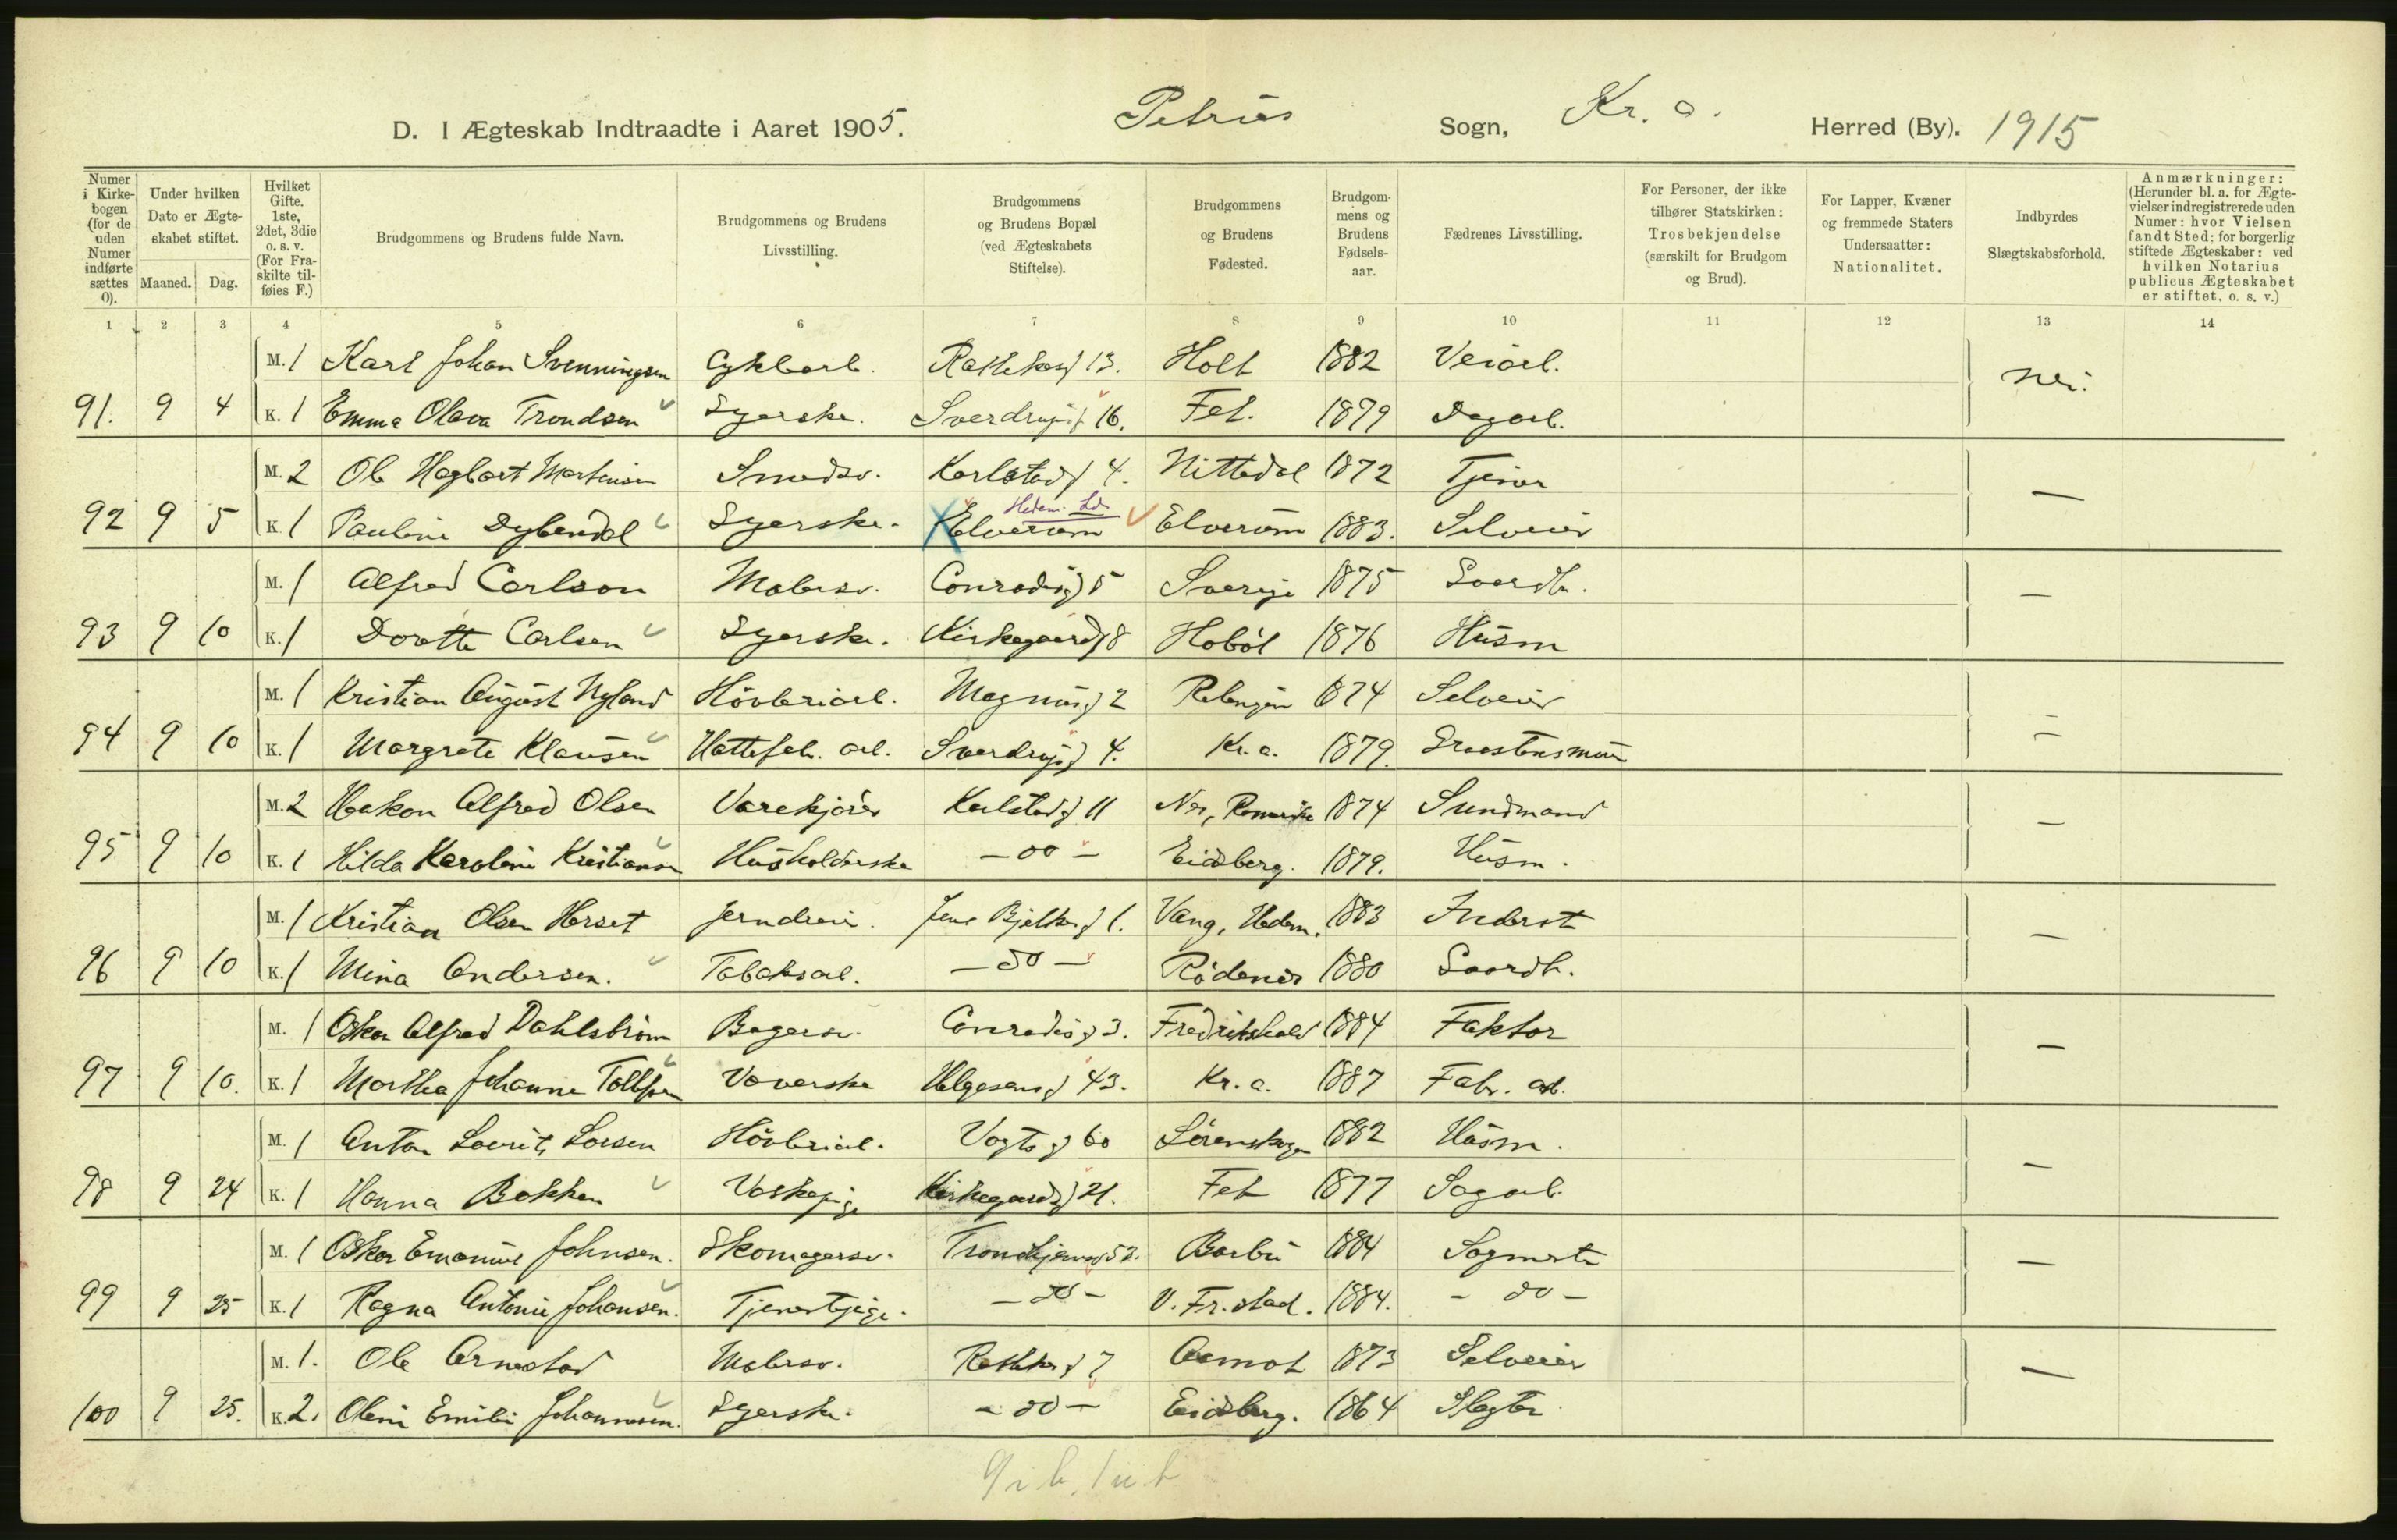 D. I Ægteskab Indtraadte i Aaret 1905. Petrus Sogn, Kr. a. Herred (By). 1915
Numer i Kirkebogen (for de uden Numer indførte sættes 0).
Under hvilken Dato er Ægteskabet stiftet.
Maaned. Dag.
Hvilket Gifte. 1ste, 2det, 3die o. s. v. (For Fraskilte tilføies F.)
Brudgommens og Brudens fulde Navn.
Brudgommens og Brudens Livsstilling.
Brudgommens og Brudens Bopæl (ved Ægteskabets Stiftelse).
Brudgommens og Brudens Fødested.
Brudgommens og Brudens Fødselsaar.
Fædrenes Livsstilling.
For Personer, der ikke tilhører Statskirken: Trosbekjendelse (særskilt for Brudgom og Brud).
For Lapper, Kvæner og fremmede Staters Undersaatter: Nationalitet.
Indbyrdes Slægtskabsforhold.
Anmærkninger: (Herunder bl. a. for Ægtevielser indregistrerede uden Numer: hvor Vielsen fandt Sted; for borgerlig stiftede Ægteskaber: ved hvilken Notarius publicus Ægteskabet er stiftet, o. s. v.)
1 2 3 4 5 6 7 8 9 10 11 12 13 14
M. 1 Karl Johan Svenningsen Cyklearb. 13. Holt 1882 Veiarb. nei.
91. 9 4 K. 1 Emma Olava Trondsen Syerske. Sverdrupsg 16. Fet. 1879 Dagarb.
M. 2 Ole Hagbart Martinsen Smedsv. Karlstadg 4. Nittedal 1872 Tjener —
Hedem.
92 9 5 K. 1 Pauline Dybendal Syerske. Elverum Elverum 1883. Selveier
M. 1 Alfred Carlson Malersv. Conradisg 5 Sverige 1875 Gaardb. —
93 9 10 K. 1 Dorthe Carlsen Syerske. Kirkegaardg 8 Hobøl 1876 Husm
M. 1 Kristian August Nyland Høvleriarb. Magnusg 2 Rakkestad 1874 Selveier —
94 9 10 K. 1 Margrete Klausen Hattefab. arb. Sverdrupsg 4. Kr. a. 1879. Graastensmur
M. 2 Haakon Alfred Olsen Varekjører Karlstadg 11 Nes, Romerike 1874 Sundmand —
95 9 10 K. 1 Hilda Karoline Kristiansen Husholderske — do — Eidsberg. 1879. Husm.
M. 1 Kristian Olsen Horset Jerndreier. Jens Bjelkesg 1. Vang, Hedem. 1883 Inderst —
96 9 10 K. 1 Mina Andersen. Tobaksarb. — do — Rødenes 1880 Gaardb.
M. 1 Oskar Alfred Dahlstrøm Bagersv. Conradisg 3. Fredrikshald 1884 Faktor —
97 9 10. K. 1 Martha Johanne Tollefsen Væverske Helgesensg 43. Kr. a. 1887 Fabr. arb.
M. 1 Anton Lauritz Larsen Høvleriarb. Vogts g 60 Lørenskogen 1882 Husm. —
98 9 24 K. 1 Hanna Bakken Vaskepige Kirkegaardsg 21. Fet 1877 Sagarb.
M. 1 Oskar Emanuel Johnsen. Skomagersv. Trondhjemsv 52. Barbu 1884 Sagmester —
99 9 25 K. 1 Ragna Antonie Johansen. Tjenestepige. — do — V. Fr.stad. 1884. — do —
M. 1. Ole Arnestad Malersv. 7 Aamot 1873 Selveier —
100 9 25. K. 2. Oline Emilie Johannesen. Syerske. — do — Eidsberg. 1864 Slagter
9 i b, 1 u b